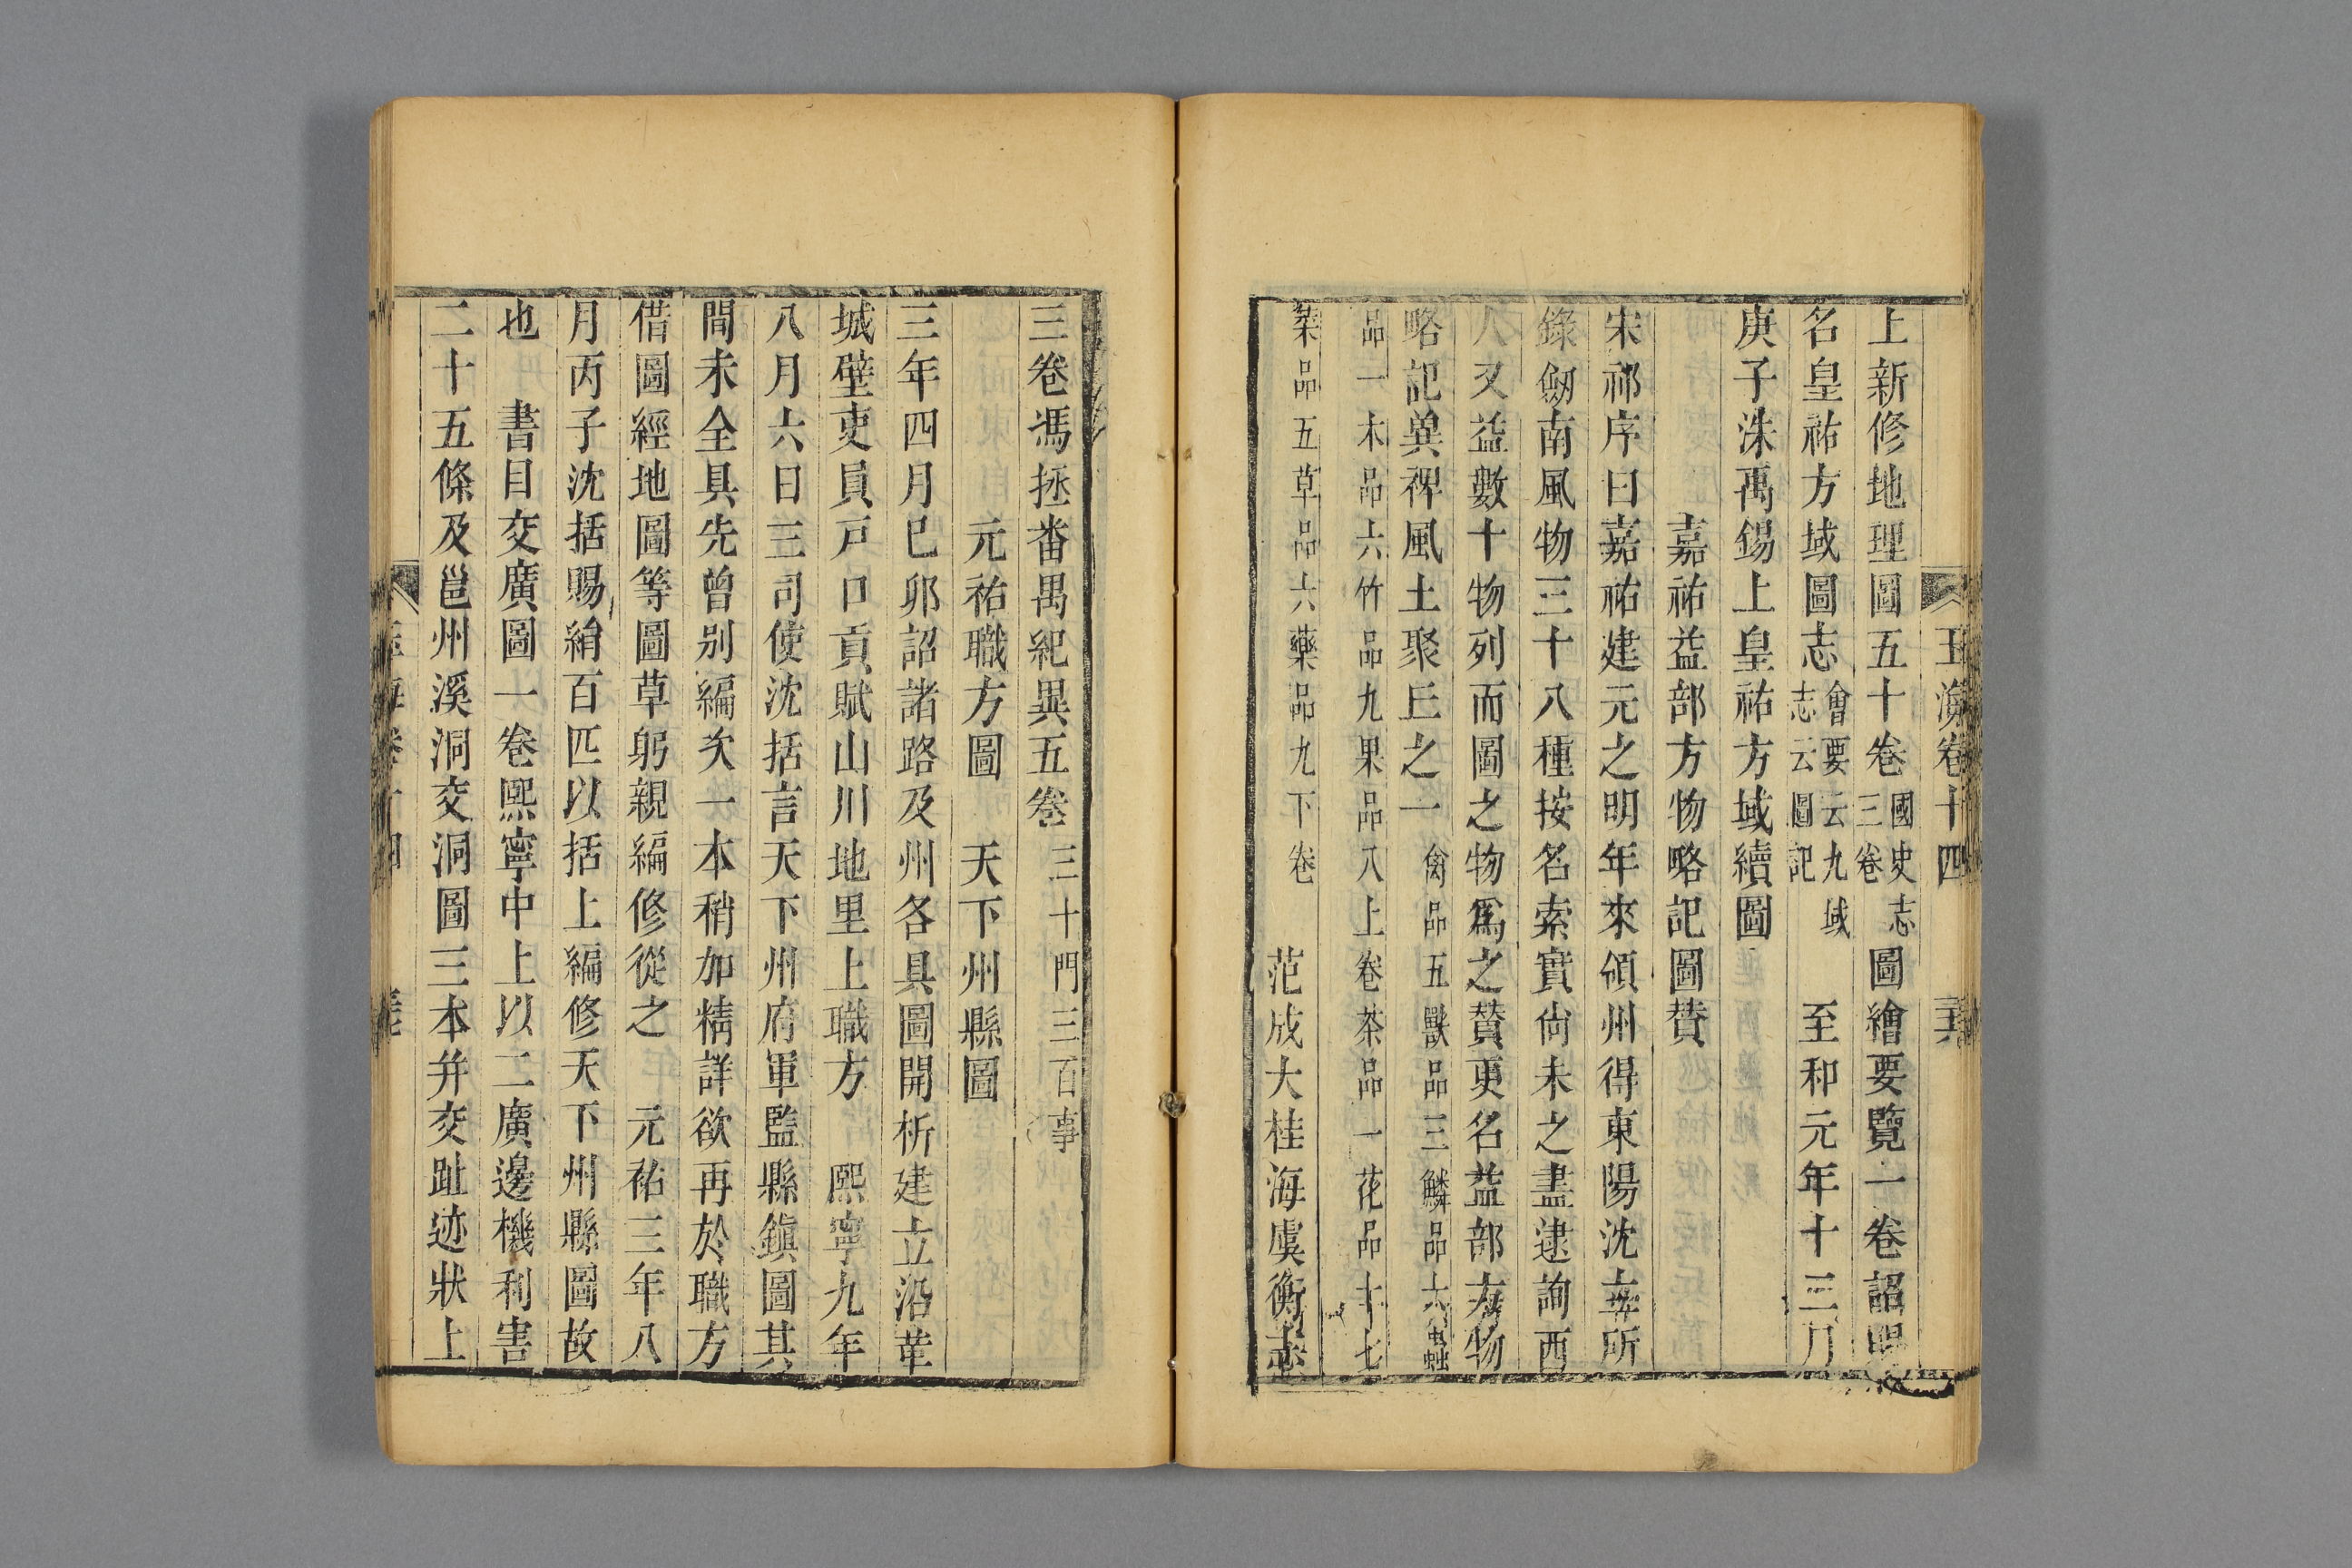 玉海卷十四
上新修地理圖五十卷國史志三卷圖繪要覽一卷詔賜
名皇祐方域圖志會要云九域志云圖記 至和元年十三月
庚子洙禹錫上皇祐方域續圖
嘉祐益部方物略記圖贊
宋祁序曰嘉祐建元之明年來領州得東陽沈立所
錄劒南風物三十八種按名索實尙未之盡逮詢西
人又益數十物列而圖之物爲之贊更名益部方物
略記冀裨風土聚丘之一禽品五獸品三鱗品六蟲
品一木品六竹品九果品八上卷茶品一花品十七
藥品五草品六藥品九下卷 范成大桂海虞衡志
三卷馮拯番禺紀異五卷三十門三百事
元祐職方圖 天下州縣圖
三年四月巳卯詔諸路及州各具圖開析建立沿革
城壁吏員戸口貢賦山川地里上職方 熙寧九年
八月六日三司使沈括言天下州府軍監縣鎮圖其
間未全具先曾别編次一本稍加精詳欲再於職方
借圖經地圖等圖草躬親編修從之 元祐三年八
月丙子沈括賜絹百匹以括上編修天下州縣圖故
也 書目交廣圖一卷熙寧中上以二廣邊機利害
二十五條及邕州溪洞交洞圖三本并交趾迹狀上